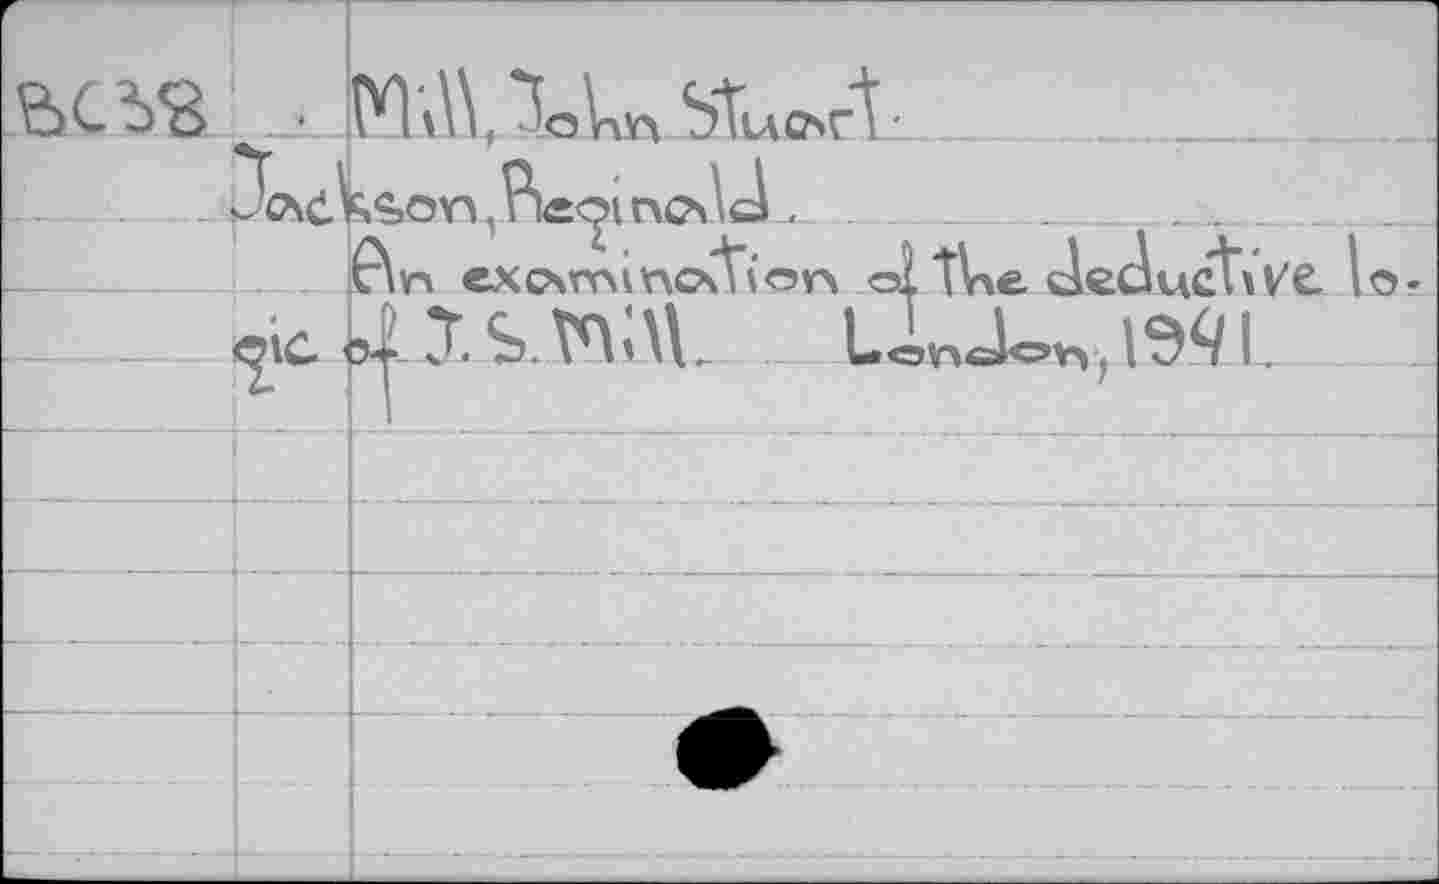 BC38 . Mill, John Stuart.
Jackson, Reginald.
An examination of the deductive lo-
gic of J. S. Mill. London, 1941.